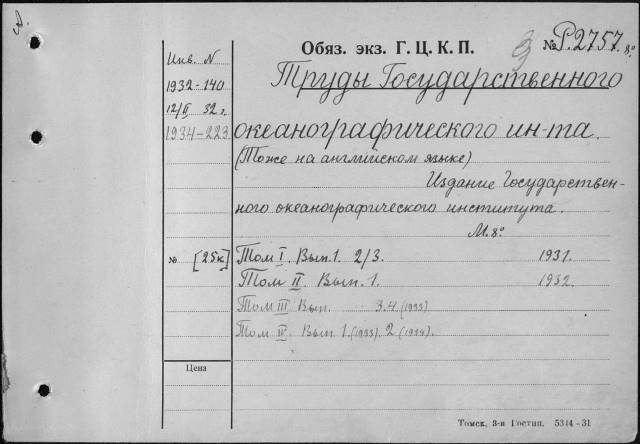 Обяз. экз. Г. Ц. К. П.
3
№ Р.2757. 8°
Инв. N
1932-140
12/II 32 г.
1934-223
Труды Государственного
океанографического ин-та.
(Тоже на английском языке)
Издание Государствен-
ного океанографического института.
М. 8°
№ [25к]
Том I. Вып. 1. 2/3. 1931.
Том II. Вып. 1. 1932.
Том III Вып. 3.4. (1933)
Том IV. Вып. 1. (1933). 2 (1934).
Цена
Томск, 3-я Гостип. 5314-31